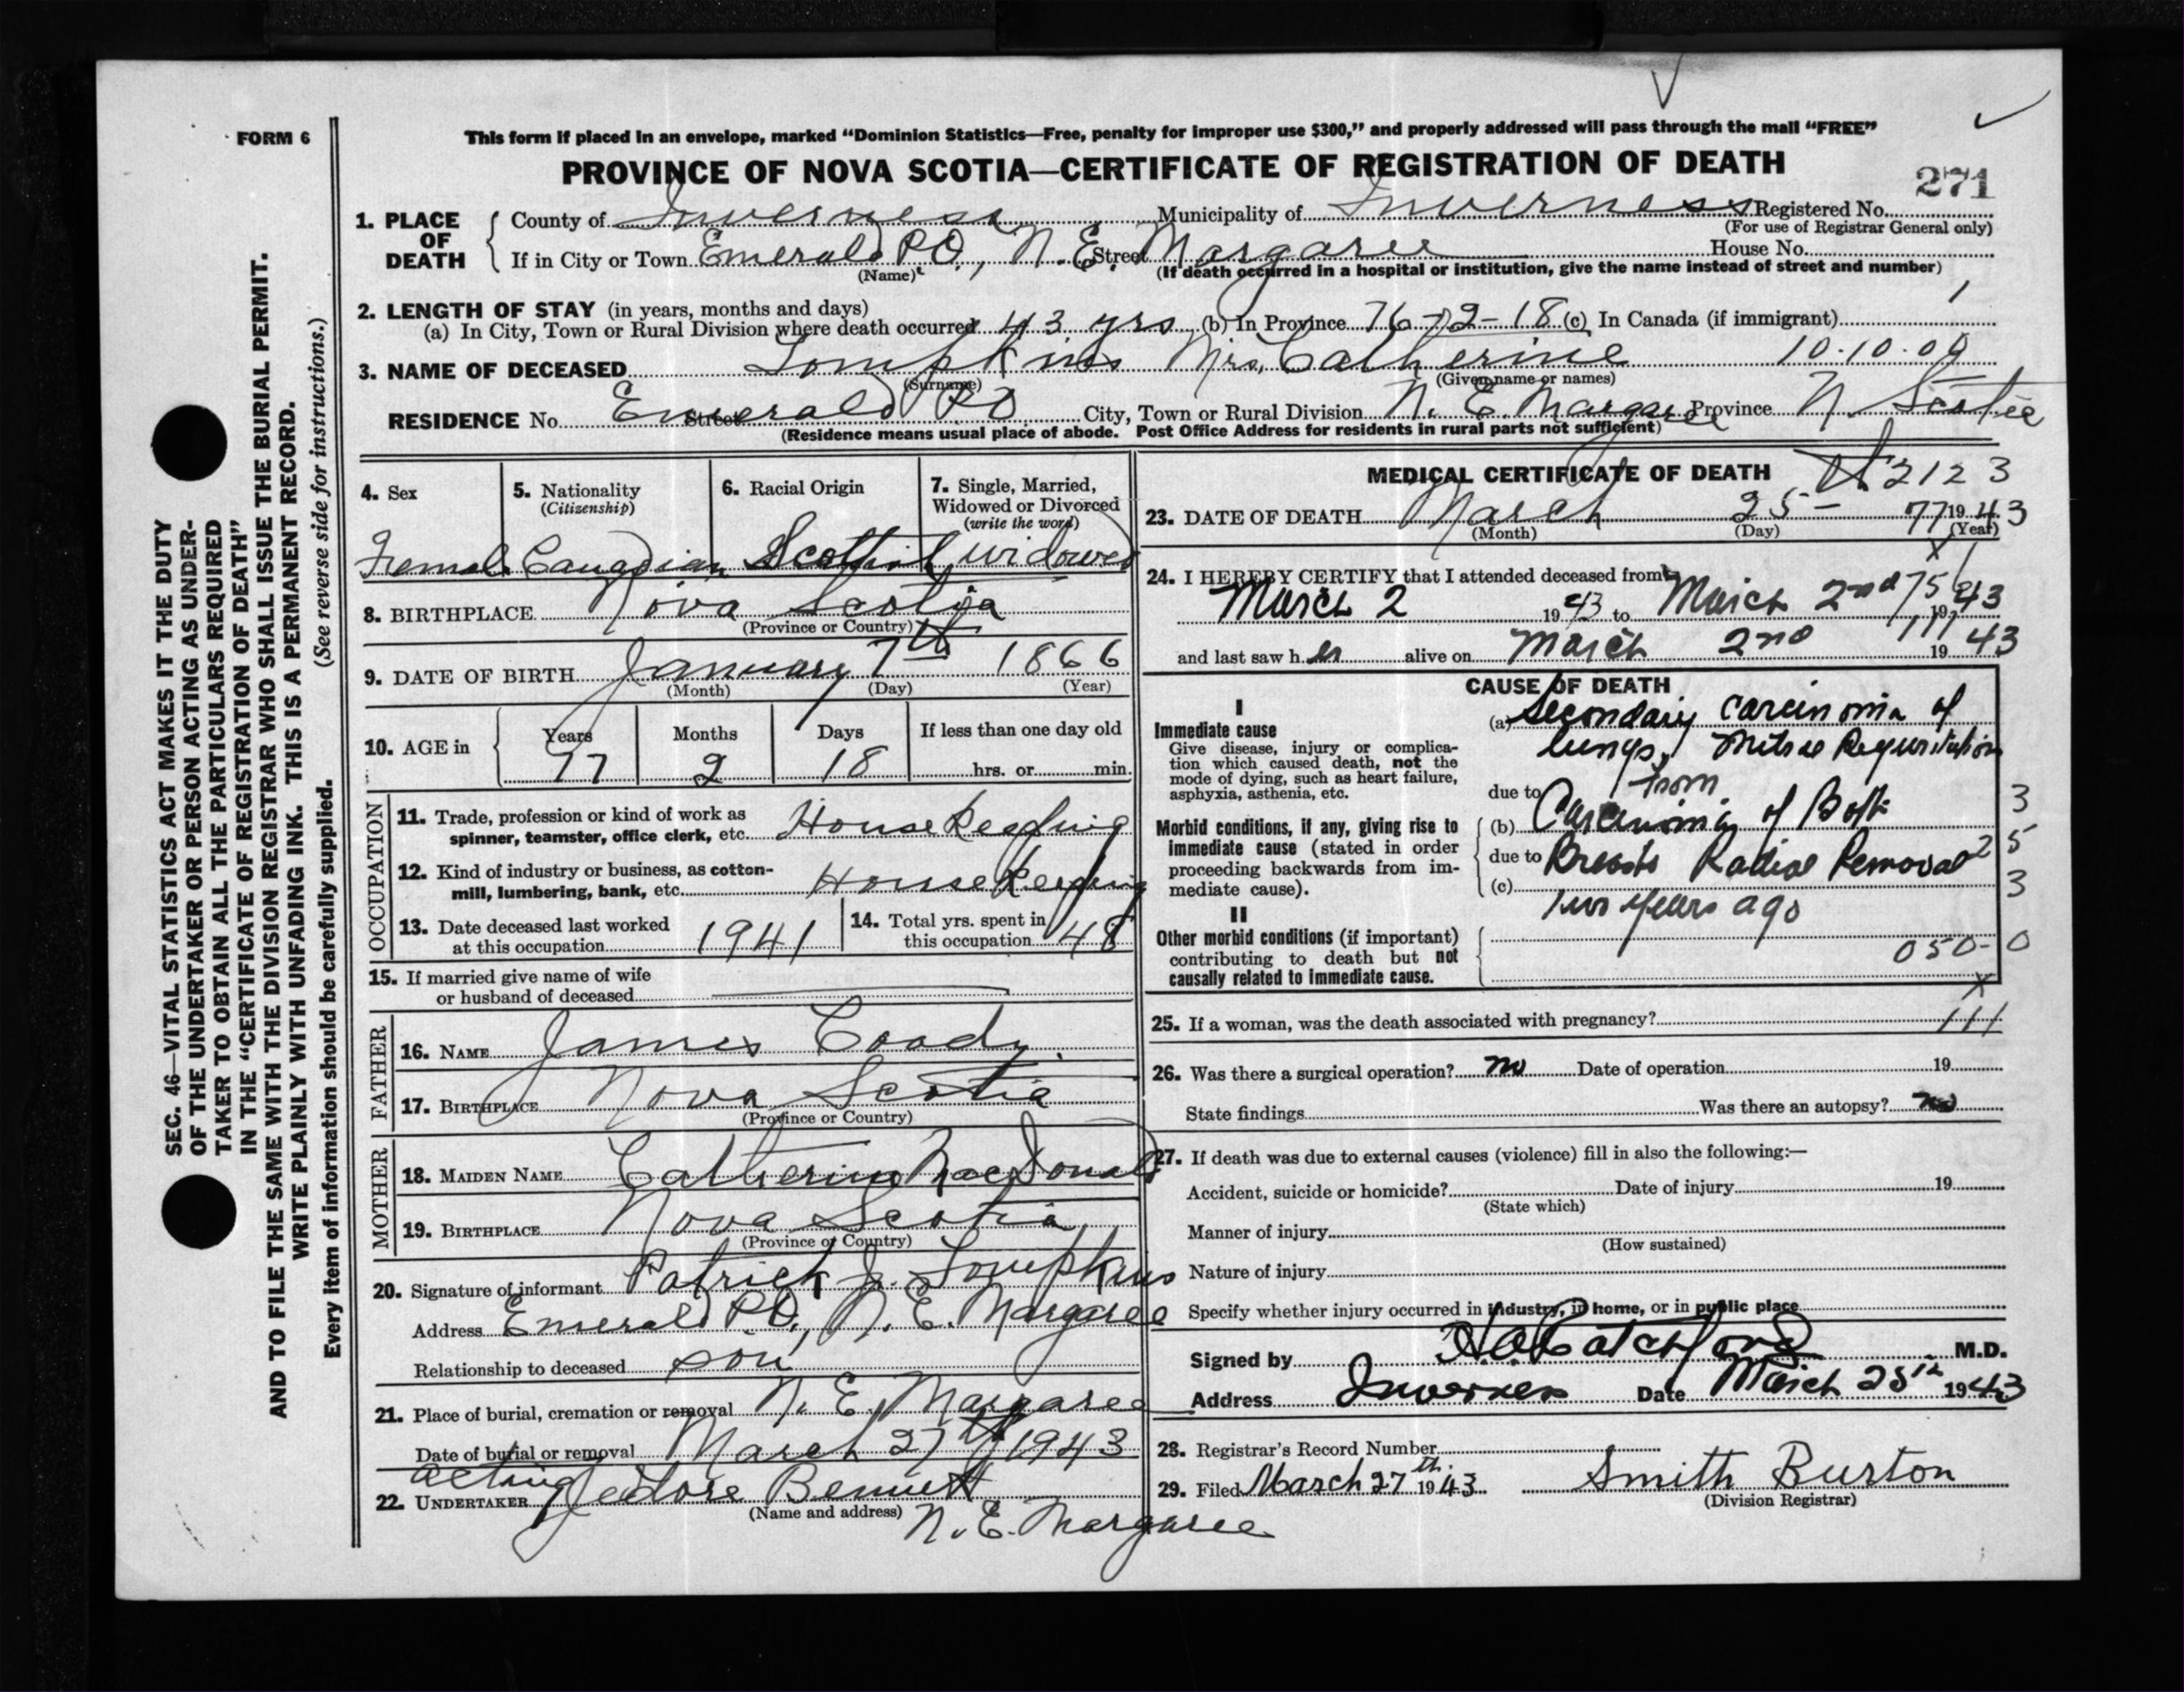 FORM 6
This form if placed in an envelope, marked “Dominion Statistics—Free, penalty for improper use $300,” and properly addressed will pass through the mail “FREE”
PROVINCE OF NOVA SCOTIA—CERTIFICATE OF REGISTRATION OF DEATH
271
1. PLACE OF DEATH { County of Inverness Municipality of Inverness Registered No.
(For use of Registrar General only)
If in City or Town Emerald P.O., N. E. Street Margaree House No.
(Name) (If death occurred in a hospital or institution, give the name instead of street and number)
2. LENGTH OF STAY (in years, months and days)
(a) In City, Town or Rural Division where death occurred 43 yrs (b) In Province 76-2-18 (c) In Canada (if immigrant)
3. NAME OF DECEASED Tompkins Mrs. Catherine 10-10-00
(Surname) (Given name or names)
RESIDENCE No. Emerald P.O Street City, Town or Rural Division N. E. Margaree Province N. Scotia
(Residence means usual place of abode. Post Office Address for residents in rural parts not sufficient)
4. Sex
Female
5. Nationality
(Citizenship)
Canadian
6. Racial Origin
Scottish
7. Single, Married,
Widowed or Divorced
(write the word)
widowed
8. BIRTHPLACE Nova Scotia
(Province or Country)
9. DATE OF BIRTH January 7th 1866
(Month) (Day) (Year)
10. AGE in { Years Months Days If less than one day old
77 2 18 hrs. or min.
OCCUPATION
11. Trade, profession or kind of work as
spinner, teamster, office clerk, etc. House Keeping
12. Kind of industry or business, as cotton-
mill, lumbering, bank, etc. House Keeping
13. Date deceased last worked
at this occupation 1941
14. Total yrs. spent in
this occupation 48
15. If married give name of wife
or husband of deceased
FATHER
16. NAME James Coady.
17. BIRTHPLACE Nova Scotia
(Province or Country)
MOTHER
18. MAIDEN NAME Catherine MacDonald
19. BIRTHPLACE Nova Scotia
(Province or Country)
20. Signature of informant Patrick J. Tompkins
Address Emerald P.O., N. E. Margaree
Relationship to deceased son
21. Place of burial, cremation or removal N. E. Margaree
Date of burial or removal March 27th 1943
acting
22. UNDERTAKER Bennett
(Name and address) N. E. Margaree
MEDICAL CERTIFICATE OF DEATH 2123
23. DATE OF DEATH March 25 — 77 1943
(Month) (Day) (Year)
24. I HEREBY CERTIFY that I attended deceased from
March 2 1943 to March 2nd 1943
and last saw her alive on March 2nd 1943
CAUSE OF DEATH
I
Immediate cause
Give disease, injury or complica-
tion which caused death, not the
mode of dying, such as heart failure,
asphyxia, asthenia, etc.
(a) Secondary Carcinoma of
lungs, Mitral Reguritation
due to from
Morbid conditions, if any, giving rise to
immediate cause (stated in order
proceeding backwards from im-
mediate cause).
(b) Carcinoma of Both 3
due to Breasts Removal 2 5
(c) 3
Two years ago
II
Other morbid conditions (if important)
contributing to death but not
causally related to immediate cause.
050-0
25. If a woman, was the death associated with pregnancy?
26. Was there a surgical operation? no Date of operation 19
State findings Was there an autopsy? no
27. If death was due to external causes (violence) fill in also the following:—
Accident, suicide or homicide? Date of injury 19
(State which)
Manner of injury
(How sustained)
Nature of injury
Specify whether injury occurred in industry, in home, or in public place
Signed by H.O. Catchford M.D.
Address Inverness Date March 25th 1943
28. Registrar's Record Number
29. Filed March 27th. 1943 Smith Burton
(Division Registrar)
SEC. 46—VITAL STATISTICS ACT MAKES IT THE DUTY
OF THE UNDERTAKER OR PERSON ACTING AS UNDER-
TAKER TO OBTAIN ALL THE PARTICULARS REQUIRED
IN THE “CERTIFICATE OF REGISTRATION OF DEATH”
AND TO FILE THE SAME WITH THE DIVISION REGISTRAR WHO SHALL ISSUE THE BURIAL PERMIT.
WRITE PLAINLY WITH UNFADING INK. THIS IS A PERMANENT RECORD.
(See reverse side for instructions.)
Every item of information should be carefully supplied.